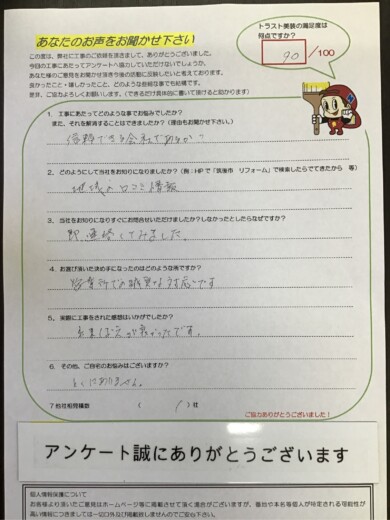 あなたのお声をお聞かせ下さい
トラスト美装の満足度は
何点ですか？
90 /100
この度は、弊社に工事のご依頼を頂きまして、ありがとうございました。
今回の工事にあたってアンケートへ協力していただけないでしょうか。
あなた様のご意見をお聞かせ頂き今後の活動に反映したいと考えております。
良かったこと・嬉しかったこと、どのような些細な事でも結構です。
是非、ご協力よろしくお願いします。（できるだけ具体的に書いて頂けると助かります）
1. 工事にあたってどのような事でお悩みでしたか？
また、それを解消することはできましたか？（理由もお聞かせ下さい）
信頼できる会社であるか？
2. どのようにして当社をお知りになりましたか？（例：HPで「筑後市 リフォーム」で検索したらでてきたから 等）
地域の口コミ情報
3. 当社をお知りになりすぐにお問合せいただけましたか？しなかったとしたらなぜですか？
即、連絡してみました。
4. お選び頂いた決め手になったのはどのような所ですか？
営業所での誠実な対応です
5. 実際に工事をされた感想はいかがでしたか？
できばえが良かったです。
6. その他、ご自宅のお悩みはございますか？
とくにありません。
7 他社相見積数 （ 1 ）社
ご協力ありがとうございました！
アンケート誠にありがとうございます
個人情報保護について
お客様より頂いたご意見はホームページ等に掲載させて頂く場合がございますが、番地や本名等個人が特定される可能性が
高い情報につきましては一切口外及び掲載しませんのでご安心下さい。